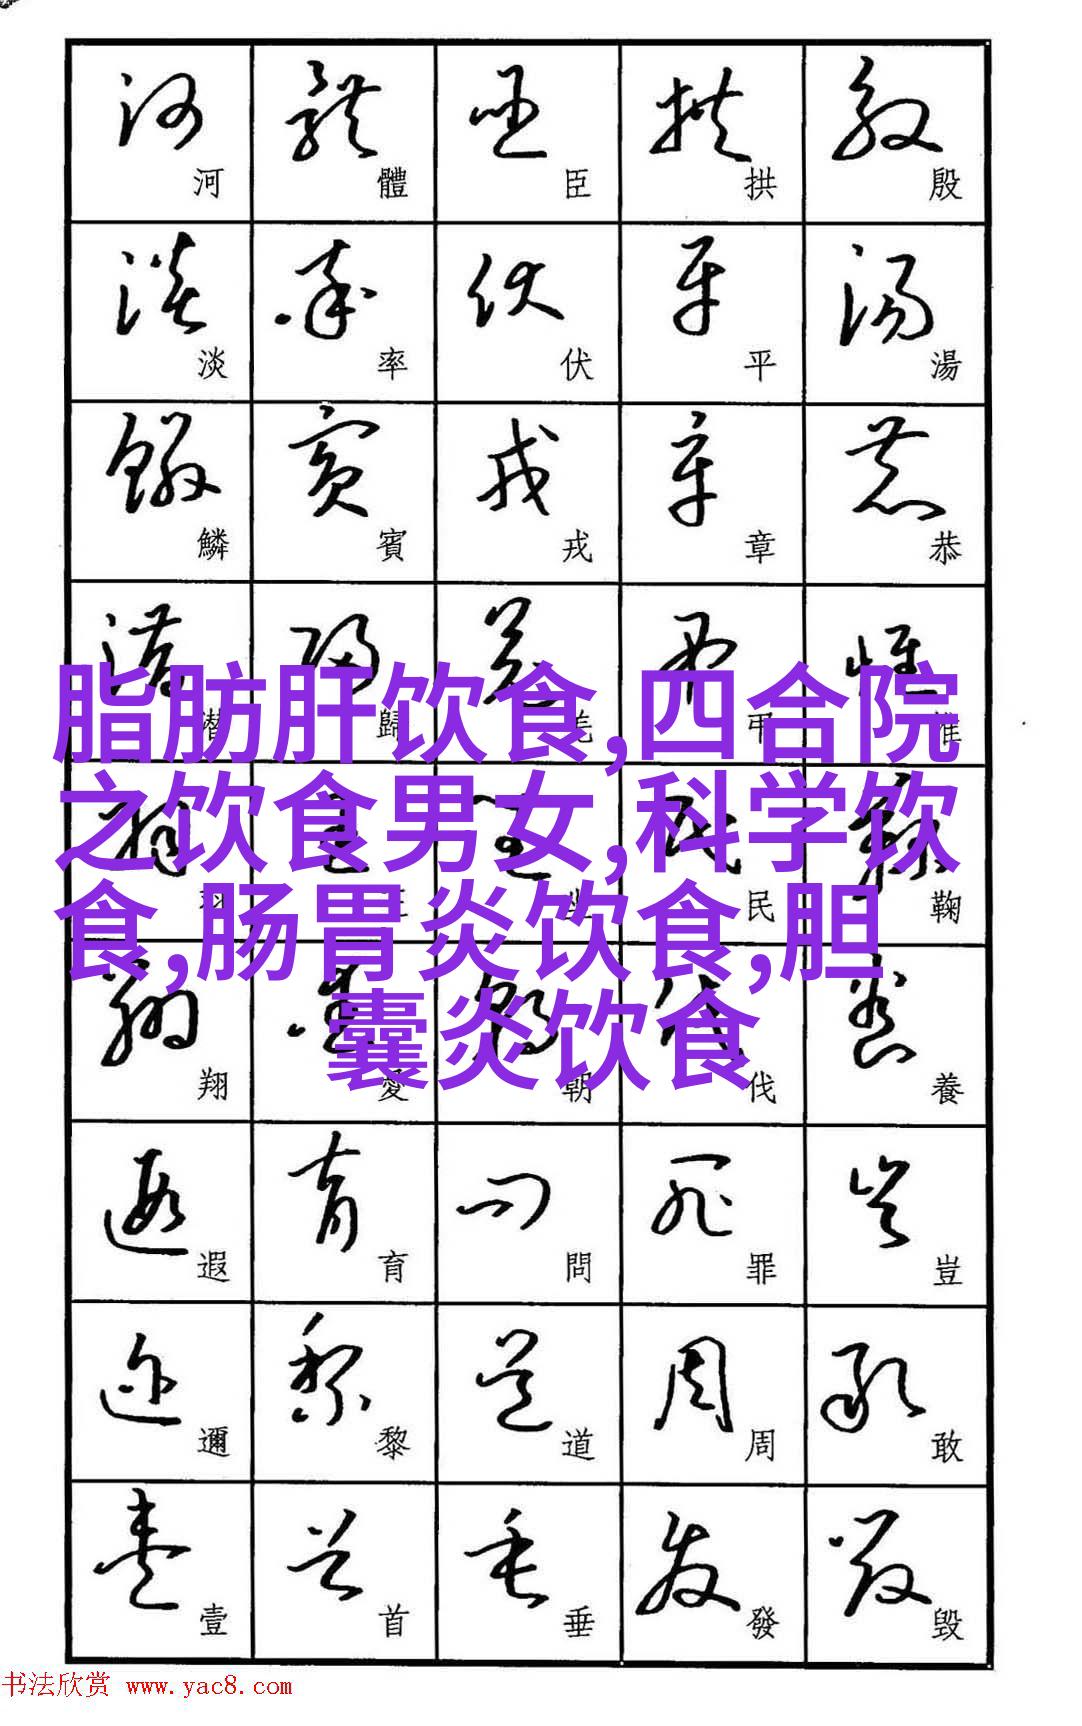 河淡鱗潛羽翔遐邇壹
體率賓歸王愛育黎首
臣伏戎羌坐朝問道垂
拱平章弔民伐罪周發
殷湯恭惟鞠養豈敢毀
脂肪肝饮食,四合院
之饮食男女,科学饮
食,肠胃炎饮食,胆
囊炎饮食
书法欣赏 www.yac8.com